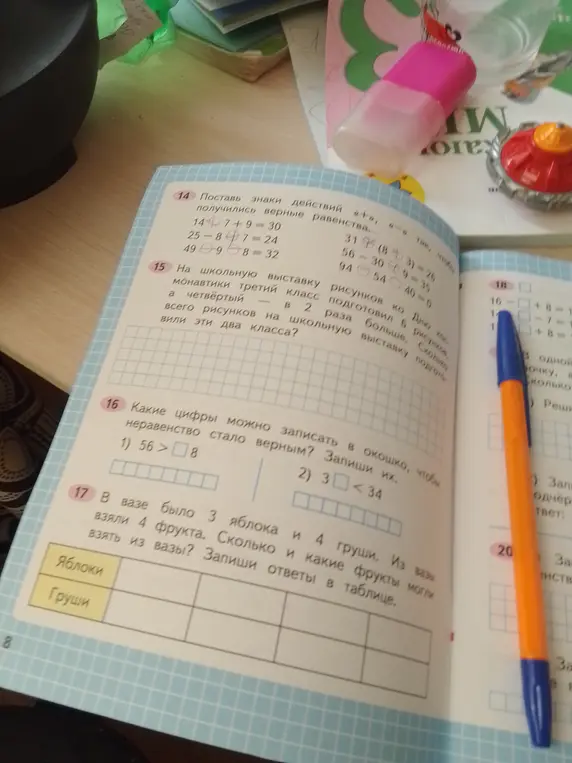 14 Поставь знаки действий «+», «−» так, чтобы
получились верные равенства.
14 + 7 + 9 = 30
25 − 8 + 7 = 24
49 − 9 − 8 = 32
31 (8 3) = 26
56 − 30 9 = 35
94 54 40 = 0
15 На школьную выставку рисунков ко Дню
монавтики третий класс подготовил 6 рисунков,
а четвёртый — в 2 раза больше. Сколько
всего рисунков на школьную выставку подгото-
вили эти два класса?
16 Какие цифры можно записать в окошко, чтобы
неравенство стало верным? Запиши их.
1) 56 > □ 8
2) 3 □ < 34
17 В вазе было 3 яблока и 4 груши. Из вазы
взяли 4 фрукта. Сколько и какие фрукты могли
взять из вазы? Запиши ответы в таблице.
Яблоки
Груши
8
18
16 − □ + 8 =
− 7 =
+ 8 =
одной
Реши
20 За